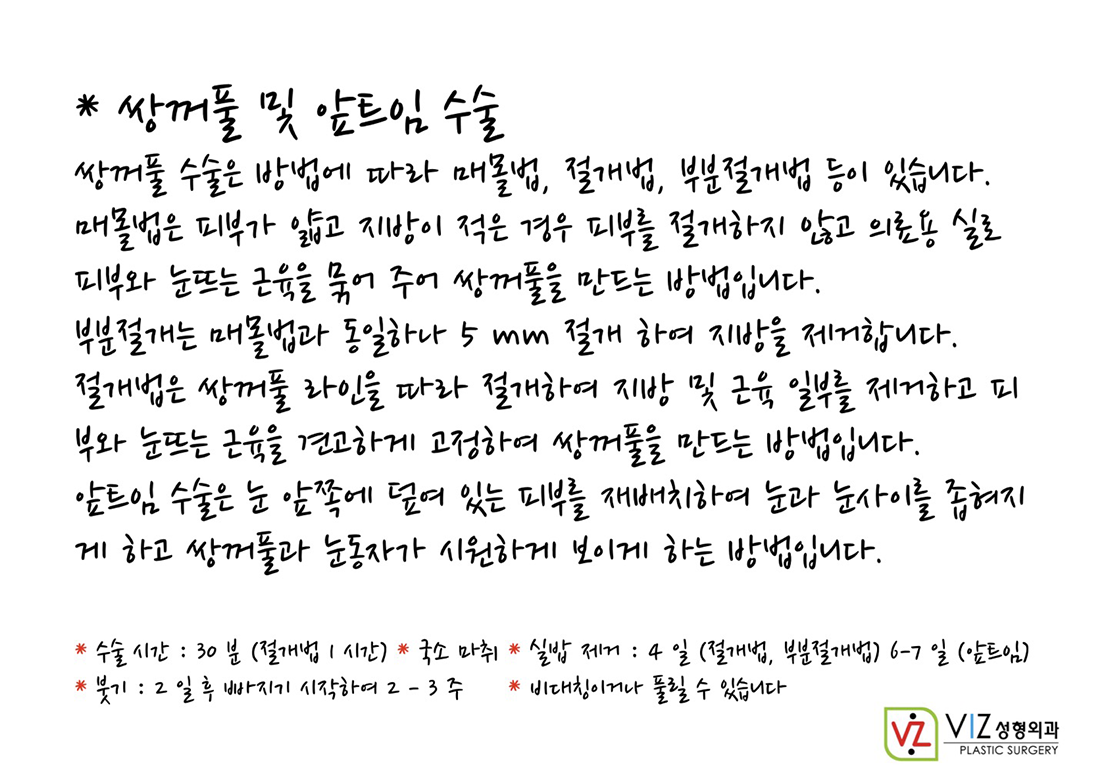 * 쌍꺼풀 및 앞트임 수술
쌍꺼풀 수술은 방법에 따라 매몰법, 절개법, 부분절개법 등이 있습니다.
매몰법은 피부가 얇고 지방이 적은 경우 피부를 절개하지 않고 의료용 실로
피부와 눈뜨는 근육을 묶어 주어 쌍꺼풀을 만드는 방법입니다.
부분절개는 매몰법과 동일하나 5 mm 절개 하여 지방을 제거합니다.
절개법은 쌍꺼풀 라인을 따라 절개하여 지방 및 근육 일부를 제거하고 피
부와 눈뜨는 근육을 견고하게 고정하여 쌍꺼풀을 만드는 방법입니다.
앞트임 수술은 눈 앞쪽에 덮여 있는 피부를 재배치하여 눈과 눈사이를 좁혀지
게 하고 쌍꺼풀과 눈동자가 시원하게 보이게 하는 방법입니다.
* 수술 시간 : 30 분 (절개법 1 시간) * 국소 마취 * 실밥 제거 : 4 일 (절개법, 부분절개법) 6-7 일 (앞트임)
* 붓기 : 2 일 후 빠지기 시작하여 2 - 3 주 * 비대칭이거나 풀릴 수 있습니다
VZ VIZ 성형외과
PLASTIC SURGERY